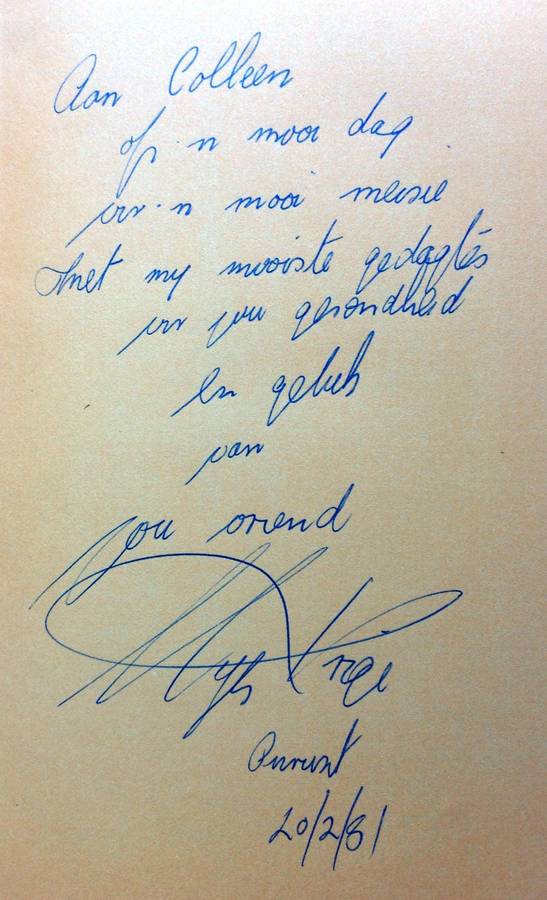 Aan Colleen
op 'n mooi dag
vir 'n mooi meisie
Met my mooiste gedagtes
vir jou gesondheid
en geluk
van
Jou vriend
20/2/81